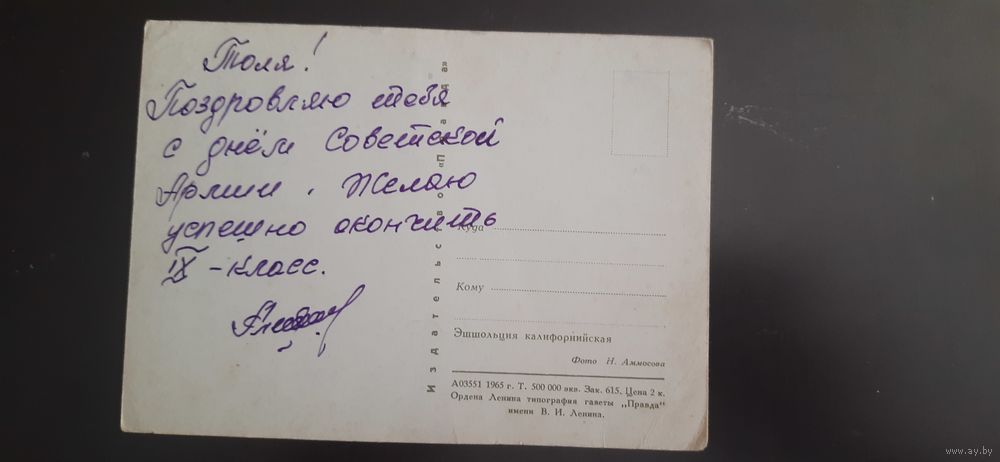 Толя!
Поздровляю тебя
с днём Советской
Армии. Желаю
успешно окончить
IX - класс.
Издательство «Правда»
Куда
Кому
Эшшольция калифорнийская
Фото Н. Аммосова
А03551 1965 г. Т. 500 000 экз. Зак. 615. Цена 2 к.
Ордена Ленина типография газеты „Правда"
имени В. И. Ленина.
www.ay.by